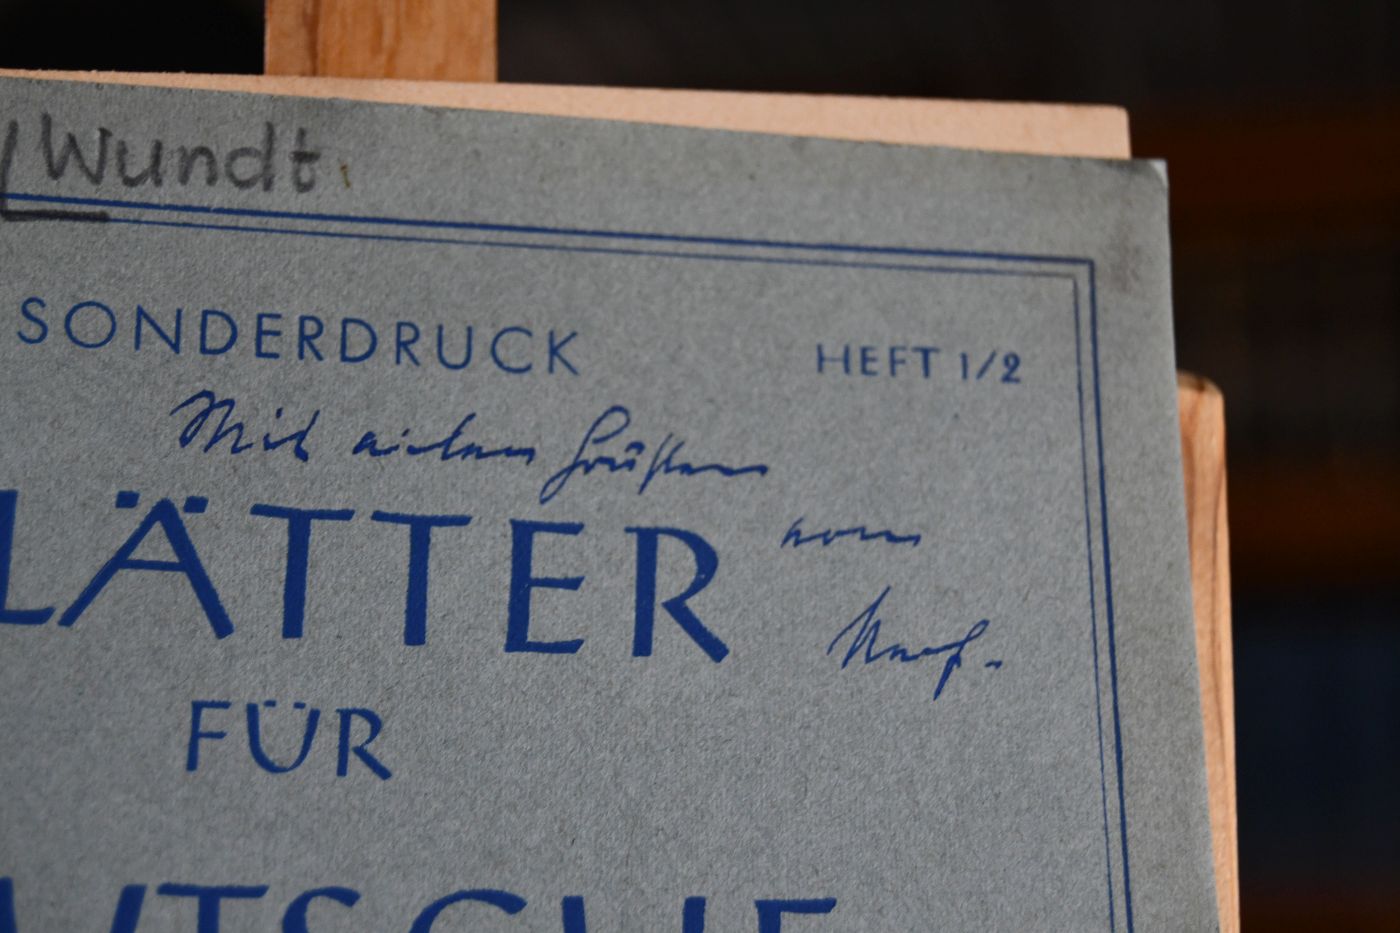 /Wundt
SONDERDRUCK HEFT 1/2
Mit vielen Grüßen
LÄTTER vom
Verf.
FÜR
UTSCHE